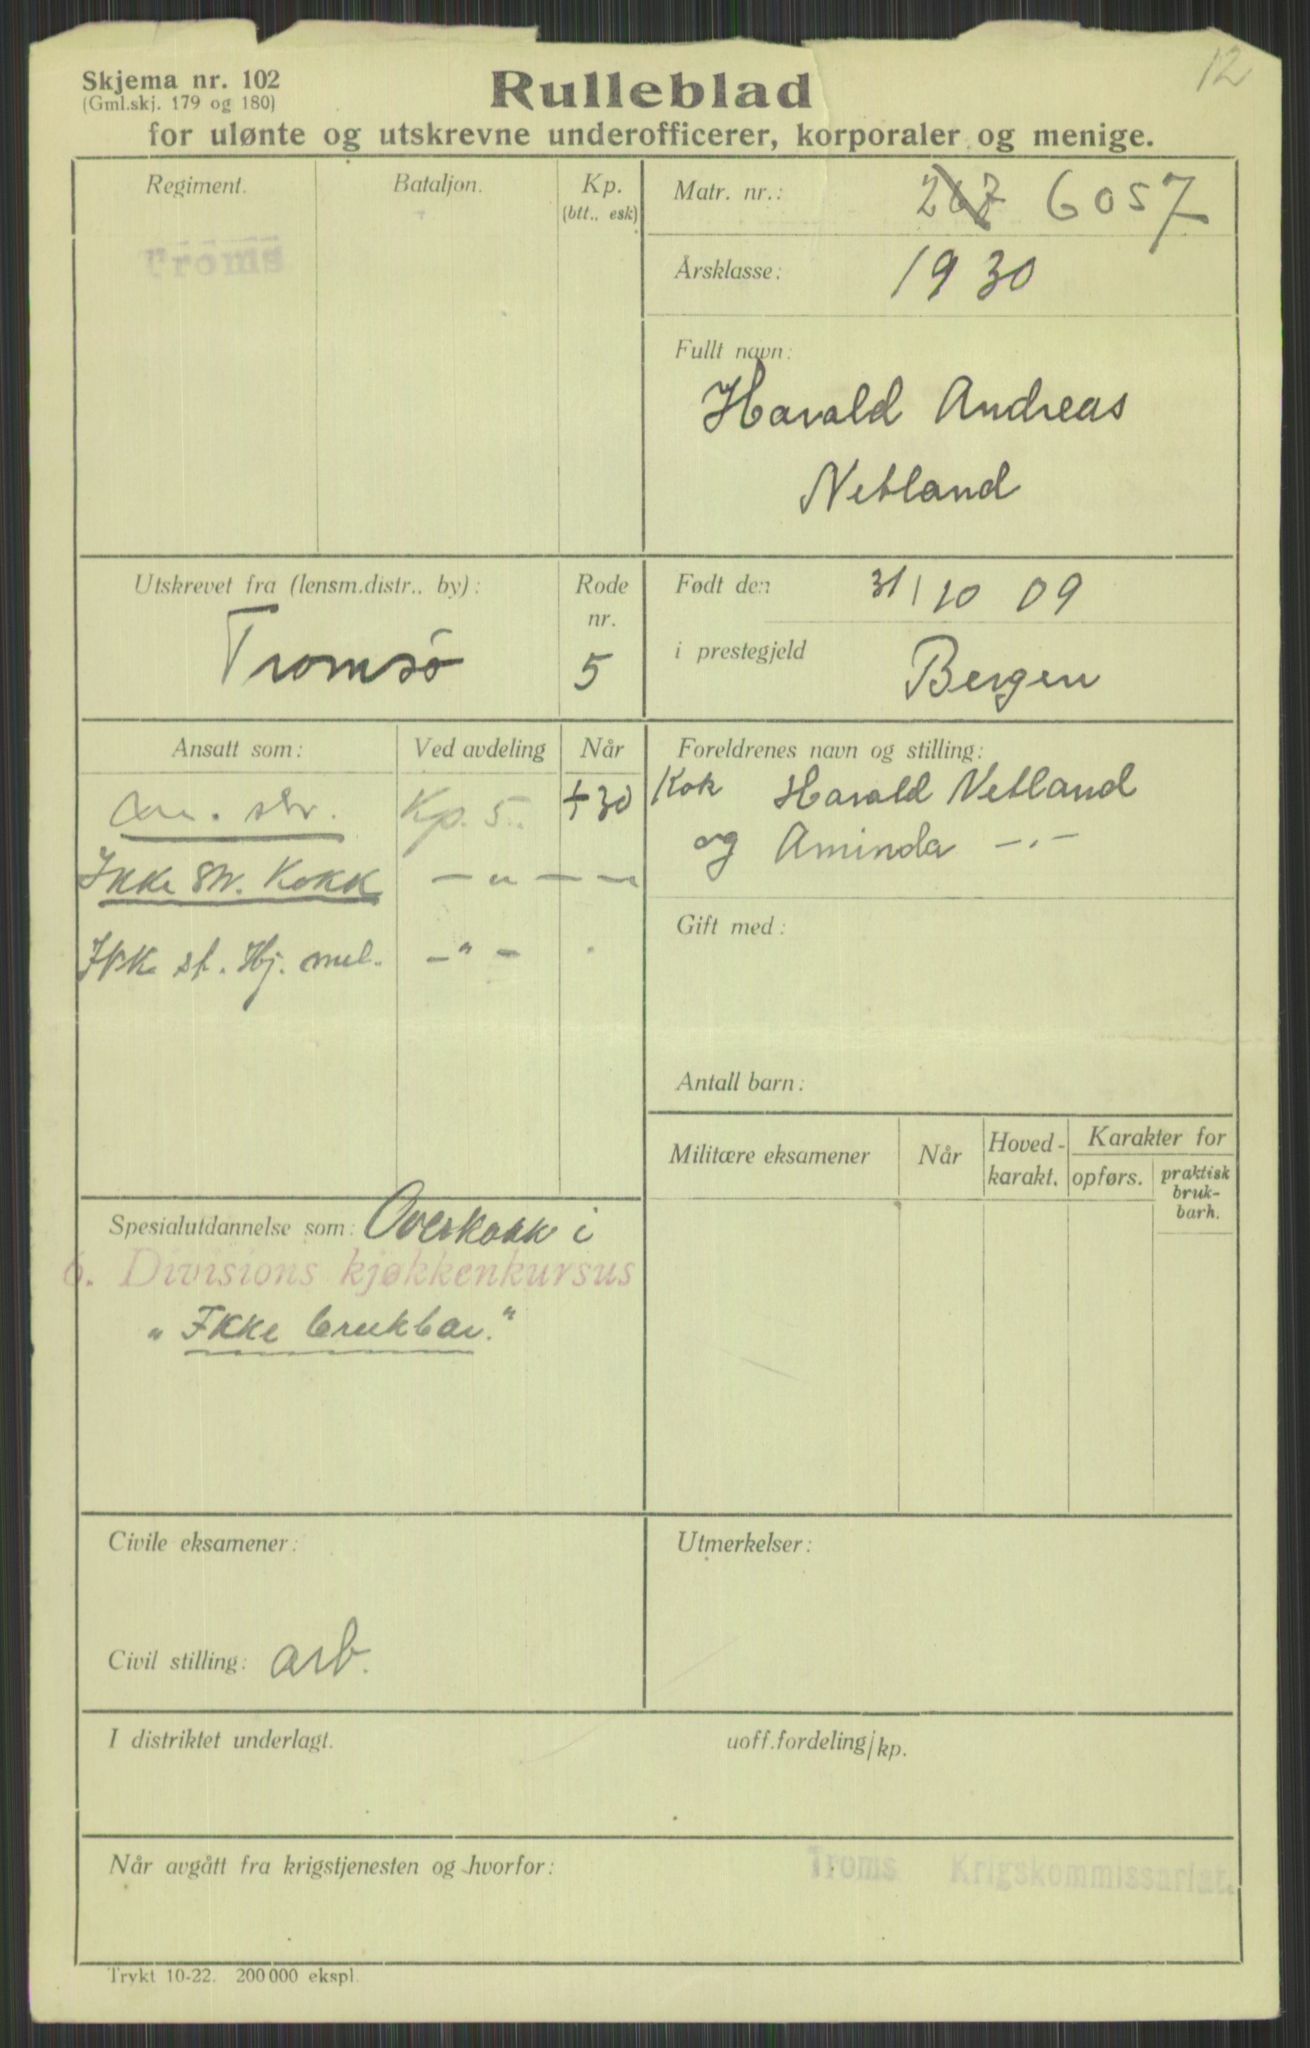 12
Skjema nr. 102
(Gml.skj. 179 og 180)
Rulleblad
for ulønte og utskrevne underofficerer, korporaler og menige.
Regiment.
Troms
Bataljon.
Kp.
(btt., esk)
Matr. nr.: 267 6057
Årsklasse: 1930
Fullt navn:
Harald Andreas
Netland
Utskrevet fra (lensm.distr., by):
Tromsö
Rode
nr.
5
Født den 31/10 09
i prestegjeld Bergen
Ansatt som: Ved avdeling Når
Kp. 5. 30
Ikke str. Kokk — „ — — „
Ikke st. Hj. mel. — „ —
Foreldrenes navn og stilling:
Kok Harald Netland
og Aminda —.—
Gift med:
Antall barn:
Militære eksamener
Når
Hoved-
karakt.
Karakter for
opførs.
praktisk
bruk-
barh.
Spesialutdannelse som: Overkokk i
6. Divisions kjøkkenkursus
„Ikke brukbar.“
Civile eksamener:
Civil stilling: arb.
Utmerkelser:
I distriktet underlagt.
uoff.fordeling/kp.
Når avgått fra krigstjenesten og hvorfor:
Troms Krigskommissariat.
Trykt 10-22. 200 000 ekspl.